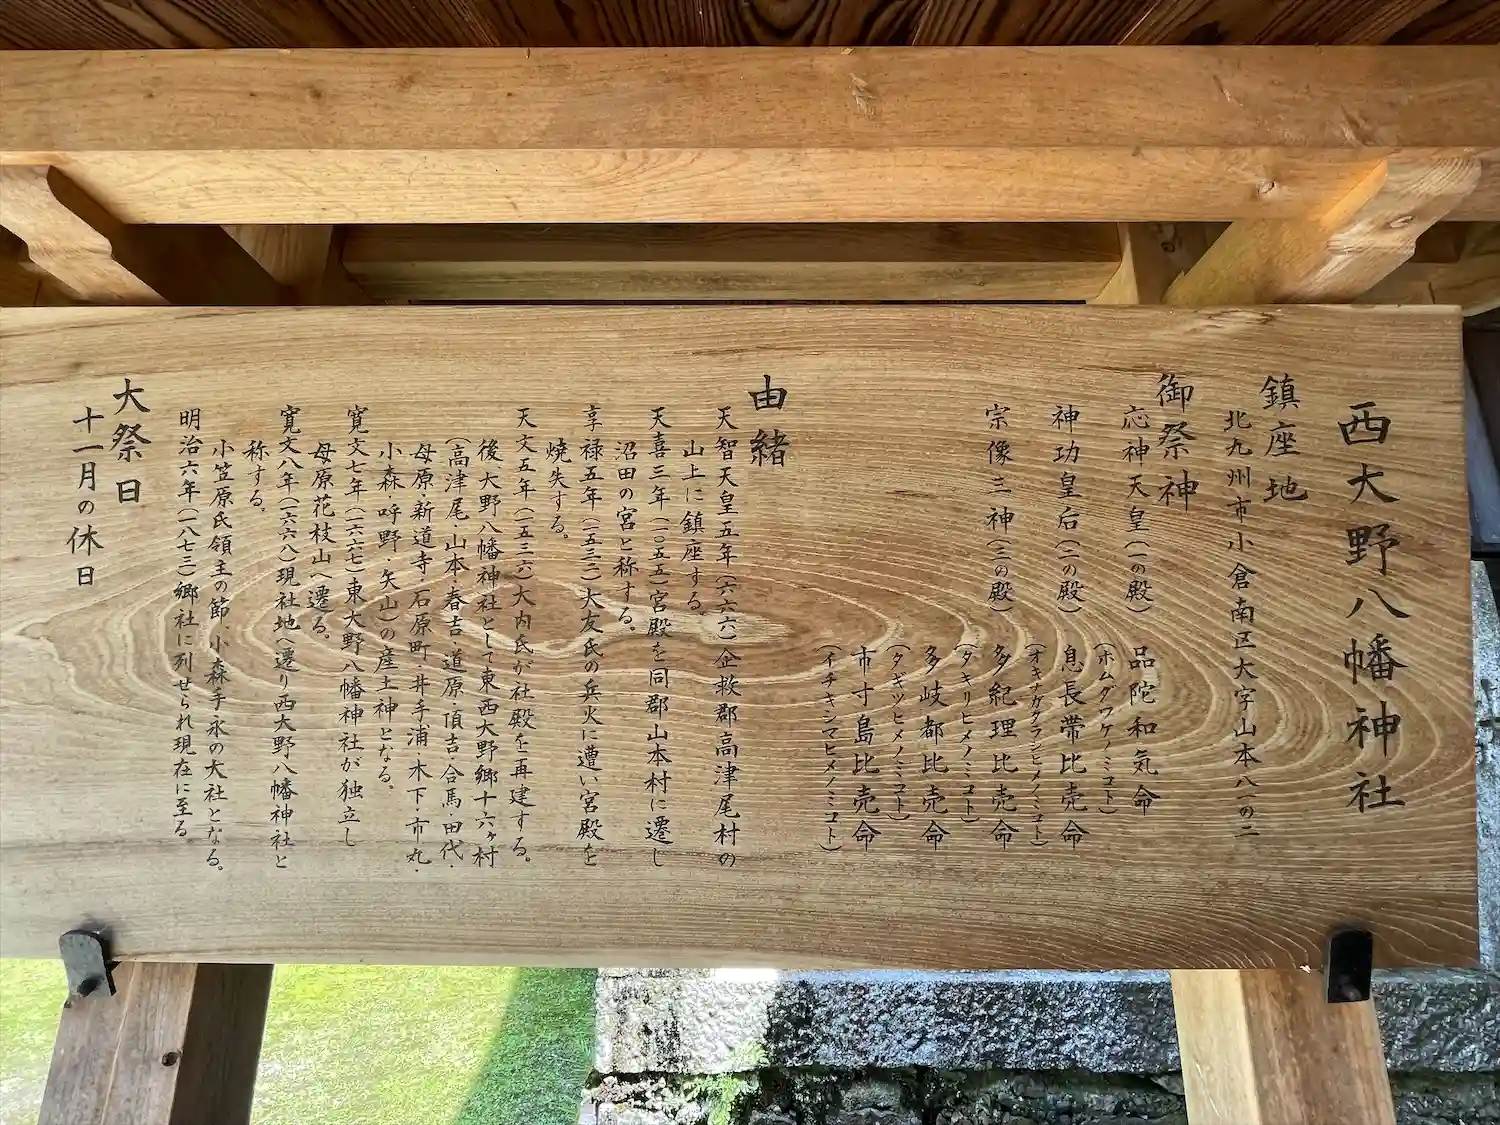 西大野八幡神社
鎮座地
北九州市小倉南区大字山本八一の二
御祭神
応神天皇(一の殿) 品陀和気命
(ホムダワケノミコト)
神功皇后(二の殿) 息長帯比売命
(オキナガタラシヒメノミコト)
宗像三神(三の殿) 多紀理比売命
(タキリヒメノミコト)
多岐都比売命
(タギツヒメノミコト)
市寸島比売命
(イチキシマヒメノミコト)
由緒
天智天皇五年(六六六)企救郡高津尾村の
山上に鎮座する。
天喜三年(一〇五五)宮殿を同郡山本村に遷し
沼田の宮と称する。
享禄五年(一五三二)大友氏の兵火に遭い宮殿を
焼失する。
天文五年(一五三六)大内氏が社殿を再建する。
後、大野八幡神社として東西大野郷十六ヶ村
(高津尾・山本・春吉・道原・頂吉・合馬・田代・
母原・新道寺・石原町・井手浦・木下・市丸・
小森・呼野・矢山)の産土神となる。
寛文七年(一六六七)東大野八幡神社が独立し
母原花枝山へ遷る。
寛文八年(一六六八)現社地へ遷り西大野八幡神社と
称する。
小笠原氏領主の節、小森手永の大社となる。
明治六年(一八七三)郷社に列せられ現在に至る。
大祭日
十一月の休日